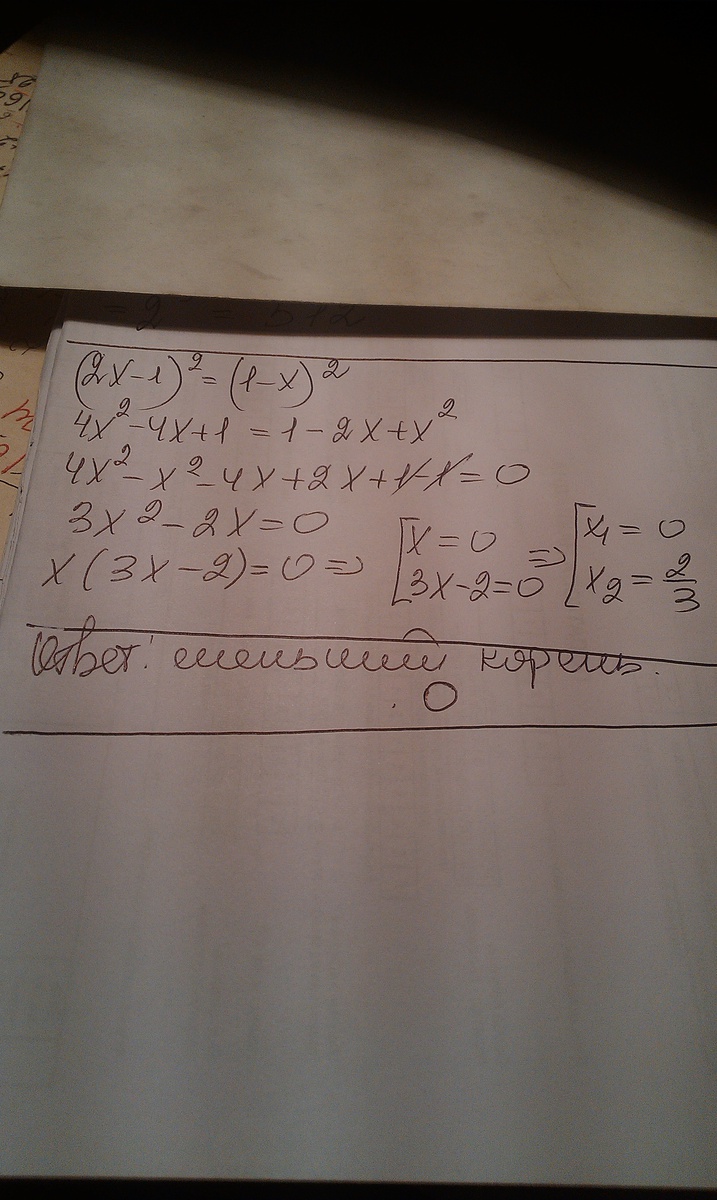 = 2 = 512
(2x-1)² = (1-x)²
4x²-4x+1 = 1-2x+x²
4x²-x²-4x+2x+1-1=0
3x²-2x=0
x(3x-2)=0 => [x=0 3x-2=0 => [x₁=0 x₂=2/3
Ответ: меньший корень.
0